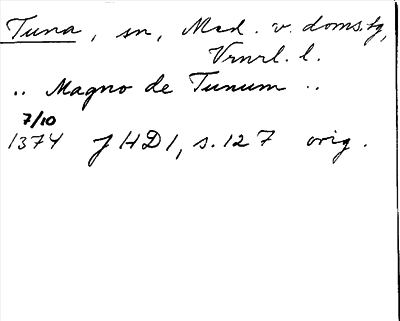 Tuna, sn, Med. v. doms.tg,
Vrnrl. l.
.. Magno de Tunum ..
7/10
1374 f HD 1, s. 127 orig.